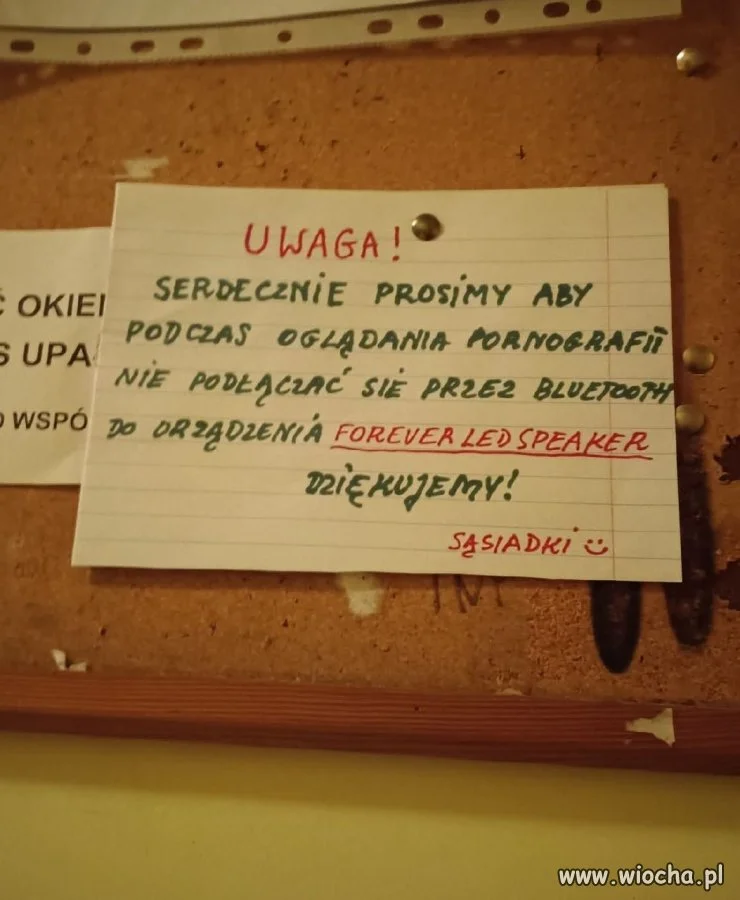 UWAGA!
SERDECZNIE PROSIMY ABY
PODCZAS OGLĄDANIA PORNOGRAFII
NIE PODŁĄCZAĆ SIE PRZEZ BLUETOOTH
DO URZĄDZENIA FOREVER LED SPEAKER
DZIĘKUJEMY!
SĄSIADKI
Ć OKIE
S UPA
WSPÓ
www.wiocha.pl